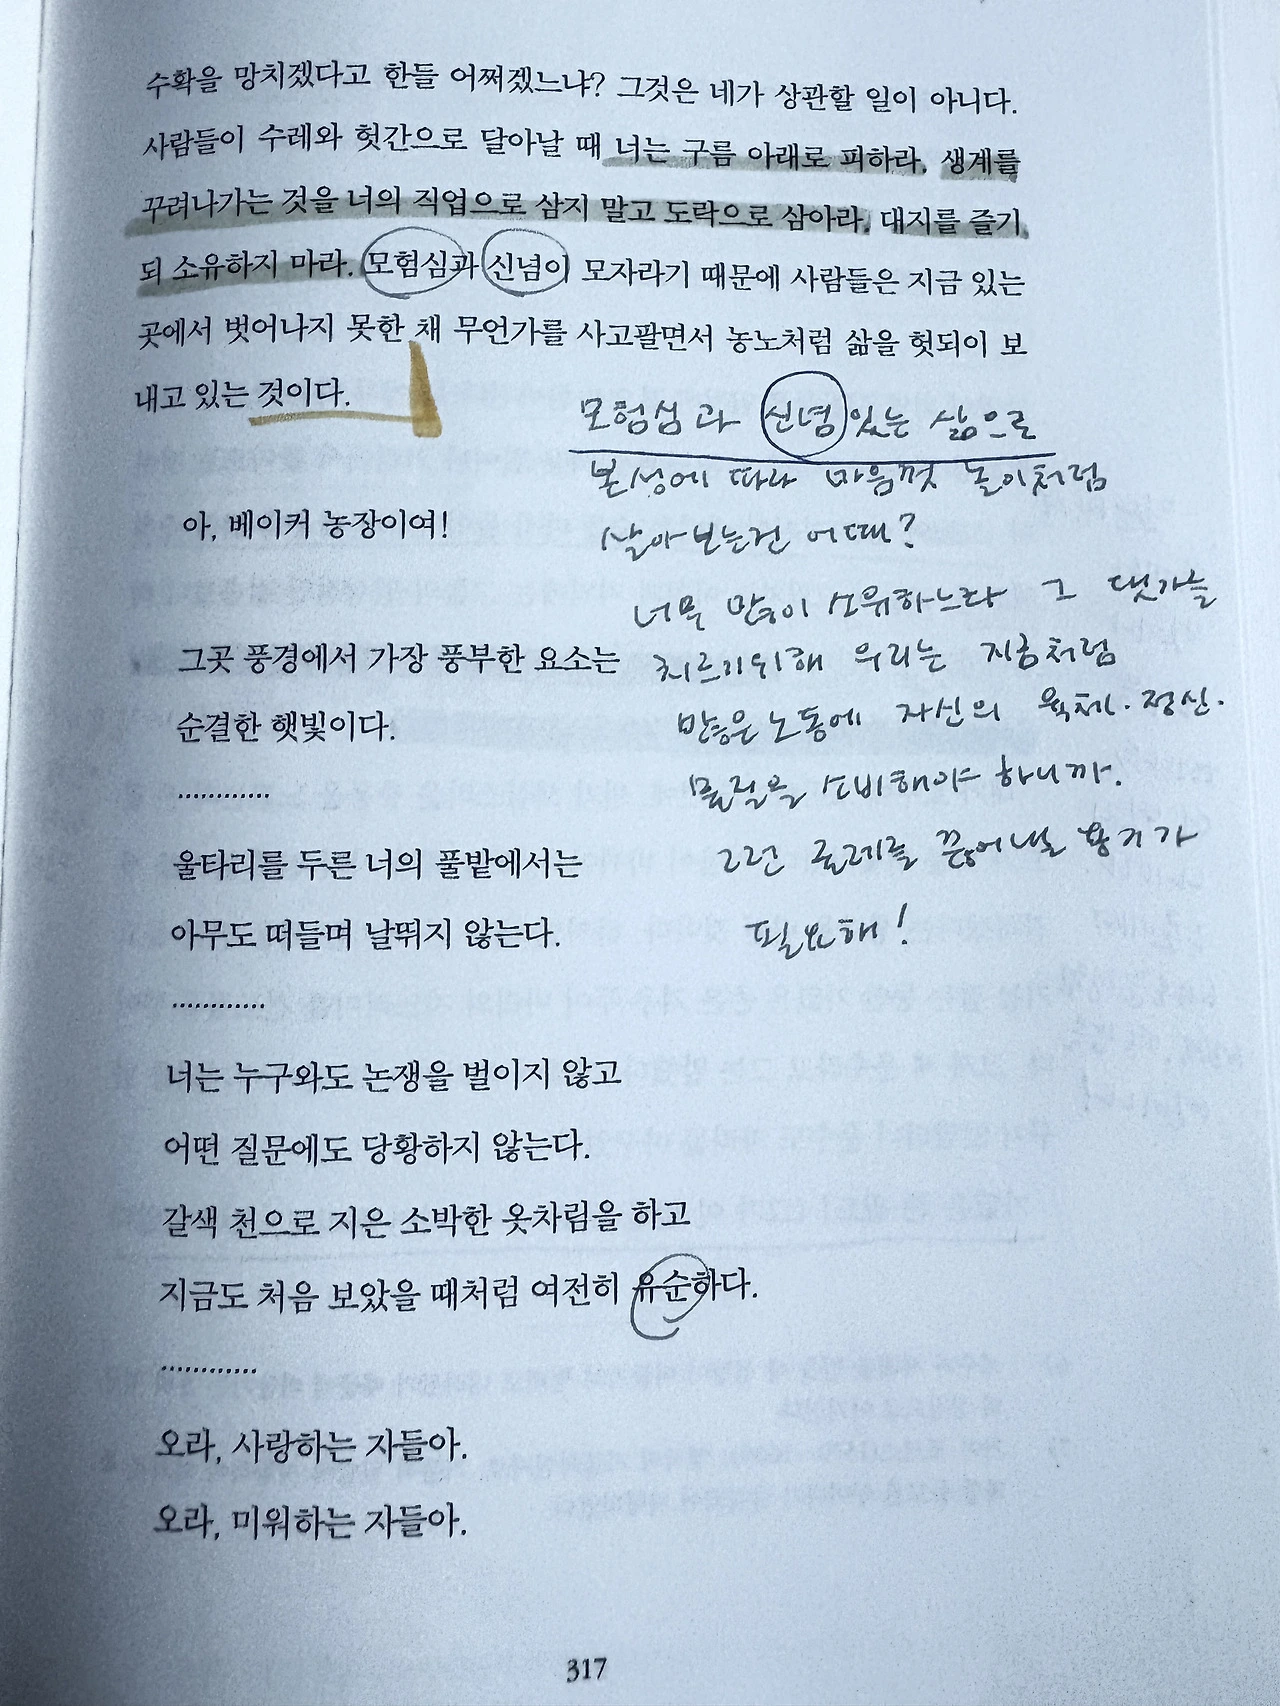 수확을 망치겠다고 한들 어쩌겠느냐? 그것은 네가 상관할 일이 아니다.
사람들이 수레와 헛간으로 달아날 때 너는 구름 아래로 피하라. 생계를
꾸려나가는 것을 너의 직업으로 삼지 말고 도락으로 삼아라. 대지를 즐기
되 소유하지 마라. 모험심과 신념이 모자라기 때문에 사람들은 지금 있는
곳에서 벗어나지 못한 채 무언가를 사고팔면서 농노처럼 삶을 헛되이 보
내고 있는 것이다.
모험심과 신념있는 삶으로
본성에 따라 마음껏 놀이처럼
살아보는건 어때?
너무 많이 소유하느라 그 댓가를
치르기위해 우리는 지금처럼
많은 노동에 자신의 육체·정신·
물질을 소비해야 하니까.
그런 굴레를 끊어낼 용기가
필요해!
아, 베이커 농장이여!
그곳 풍경에서 가장 풍부한 요소는
순결한 햇빛이다.
............
울타리를 두른 너의 풀밭에서는
아무도 떠들며 날뛰지 않는다.
............
너는 누구와도 논쟁을 벌이지 않고
어떤 질문에도 당황하지 않는다.
갈색 천으로 지은 소박한 옷차림을 하고
지금도 처음 보았을 때처럼 여전히 유순하다.
............
오라, 사랑하는 자들아.
오라, 미워하는 자들아.
317